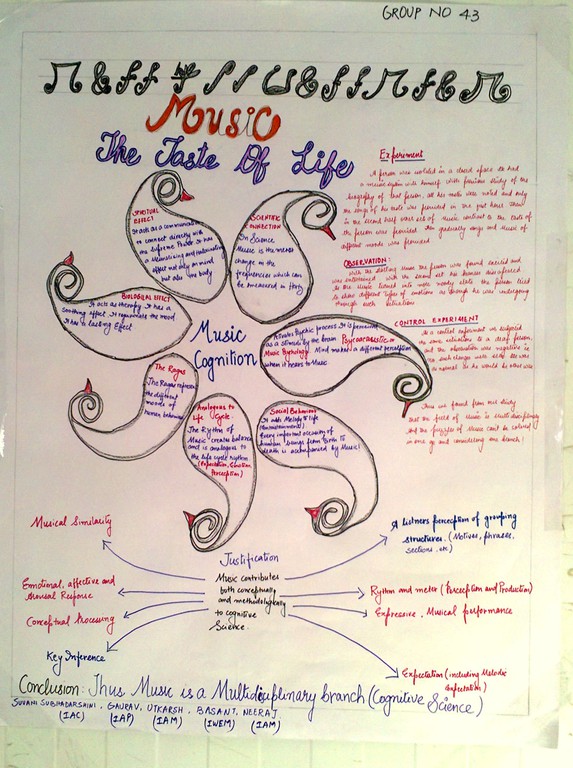 GROUP NO 43
Music
The Taste Of Life
SPIRITUAL
EFFECT
It acts as a communication
to connect directly with
the Supreme Power. It has
effect not only on mind
but also the body
SCIENTIFIC
CONNECTION
In Science
Music is the mere
change in the
frequencies which can
be measured in Hertz
BIOLOGICAL EFFECT
It acts as therapy. It has a
Soothing effect. It rejuvenates the mood
It has a lasting Effect
Music
Cognition
Activates Psychic process. It is perceived
as a stimuli by the brain Psycoacoustic or
Music Psychology. Mind makes a different perception
when it hears to Music
The Ragas
The Ragas represent
the different
moods of
human behaviour
Analogous to
Life Cycle
The Rhythm of
Music creates balance
and is analogous to
the life cycle rhythm
(Expectation, Emotion,
Perception)
Social Behaviour
It adds Melody to life
(Entertainment)
Every important occasion of
human beings from Birth to
death is accompanied by Music!
Experiment
A person was isolated in a closed space. He had
a music system with himself. With previous study of the
biography of that person, all his tastes were noted and only
the songs of his taste was provided in the first half. Then
in the second half was set of Music contrast to the taste of
the person was provided. Then gradually songs and Music of
different moods was provided
OBSERVATION:
With the starting Music the person was found excited and
was entertained. With the second set his humour disappeared
as the Music turned into more moody state the person tried
to show different types of emotions as though he was undergoing
through such situation
CONTROL EXPERIMENT
As a control experiment we subjected
the same situations to a deaf person,
but the observation was negative ie
no such changes with
as normal as he would be other wise
Thus we found from our study
that the field of Music is Multidisciplinary
and the puzzles of Music can't be solved
in one go and considering one branch!
Justification
Music contributes
both conceptually
and methodologically
to cognitive
Science.
Musical Similarity
Emotional, affective and
Arousal Response
Conceptual Processing
Key Inference
A listners perception of grouping
structures. (Motives, phrases,
sections, etc)
Rythm and meter (Perception and Production)
Expressive Musical performance
Expectation (including Melodic
expectation)
Conclusion: Thus Music is a Multidisciplinary branch (Cognitive Science)
SUVANI SUBHADARSHINI, GAURAV, UTKARSH, BASANT, NEERAJ
(IAC) (IAP) (IAM) (IWEM) (IAM)